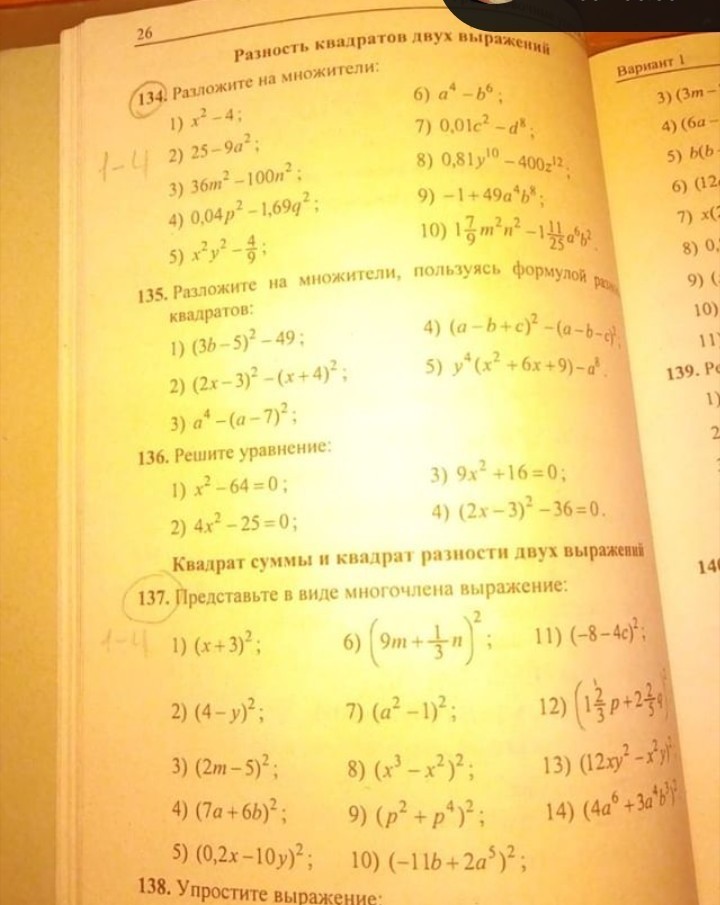 26
Разность квадратов двух выражений
134. Разложите на множители:
1) x² – 4;
2) 25 – 9a²;
3) 36m² – 100n²;
4) 0,04p² – 1,69q²;
5) x²y² – 4/9;
6) a⁴ – b⁶;
7) 0,01c² – d⁸;
8) 0,81y¹⁰ – 400z¹²;
9) –1 + 49a⁴b⁸;
10) 1 7/9 m²n² – 1 11/25 a⁶b².
1–4
135. Разложите на множители, пользуясь формулой
квадратов:
1) (3b – 5)² – 49;
2) (2x – 3)² – (x + 4)²;
3) a⁴ – (a – 7)²;
4) (a – b + c)² – (a – b – c)²;
5) y⁴(x² + 6x + 9) – a⁸.
136. Решите уравнение:
1) x² – 64 = 0;
2) 4x² – 25 = 0;
3) 9x² + 16 = 0;
4) (2x – 3)² – 36 = 0.
Квадрат суммы и квадрат разности двух выражений
137. Представьте в виде многочлена выражение:
1–4
1) (x + 3)²;
2) (4 – y)²;
3) (2m – 5)²;
4) (7a + 6b)²;
5) (0,2x – 10y)²;
6) (9m + 1/3 n)²;
7) (a² – 1)²;
8) (x³ – x²)²;
9) (p² + p⁴)²;
10) (–11b + 2a⁵)²;
11) (–8 – 4c)²;
12) (1 2/3 p + 2 2/5 q)
13) (12xy² – x²y)²
14) (4a⁶ + 3a⁴b³)²
138. Упростите выражение:
Вариант 1
3) (3m –
4) (6a –
5) b(b
6) (12
7) x(
8) 0,
9) (
10)
11)
139.
1)
2
140